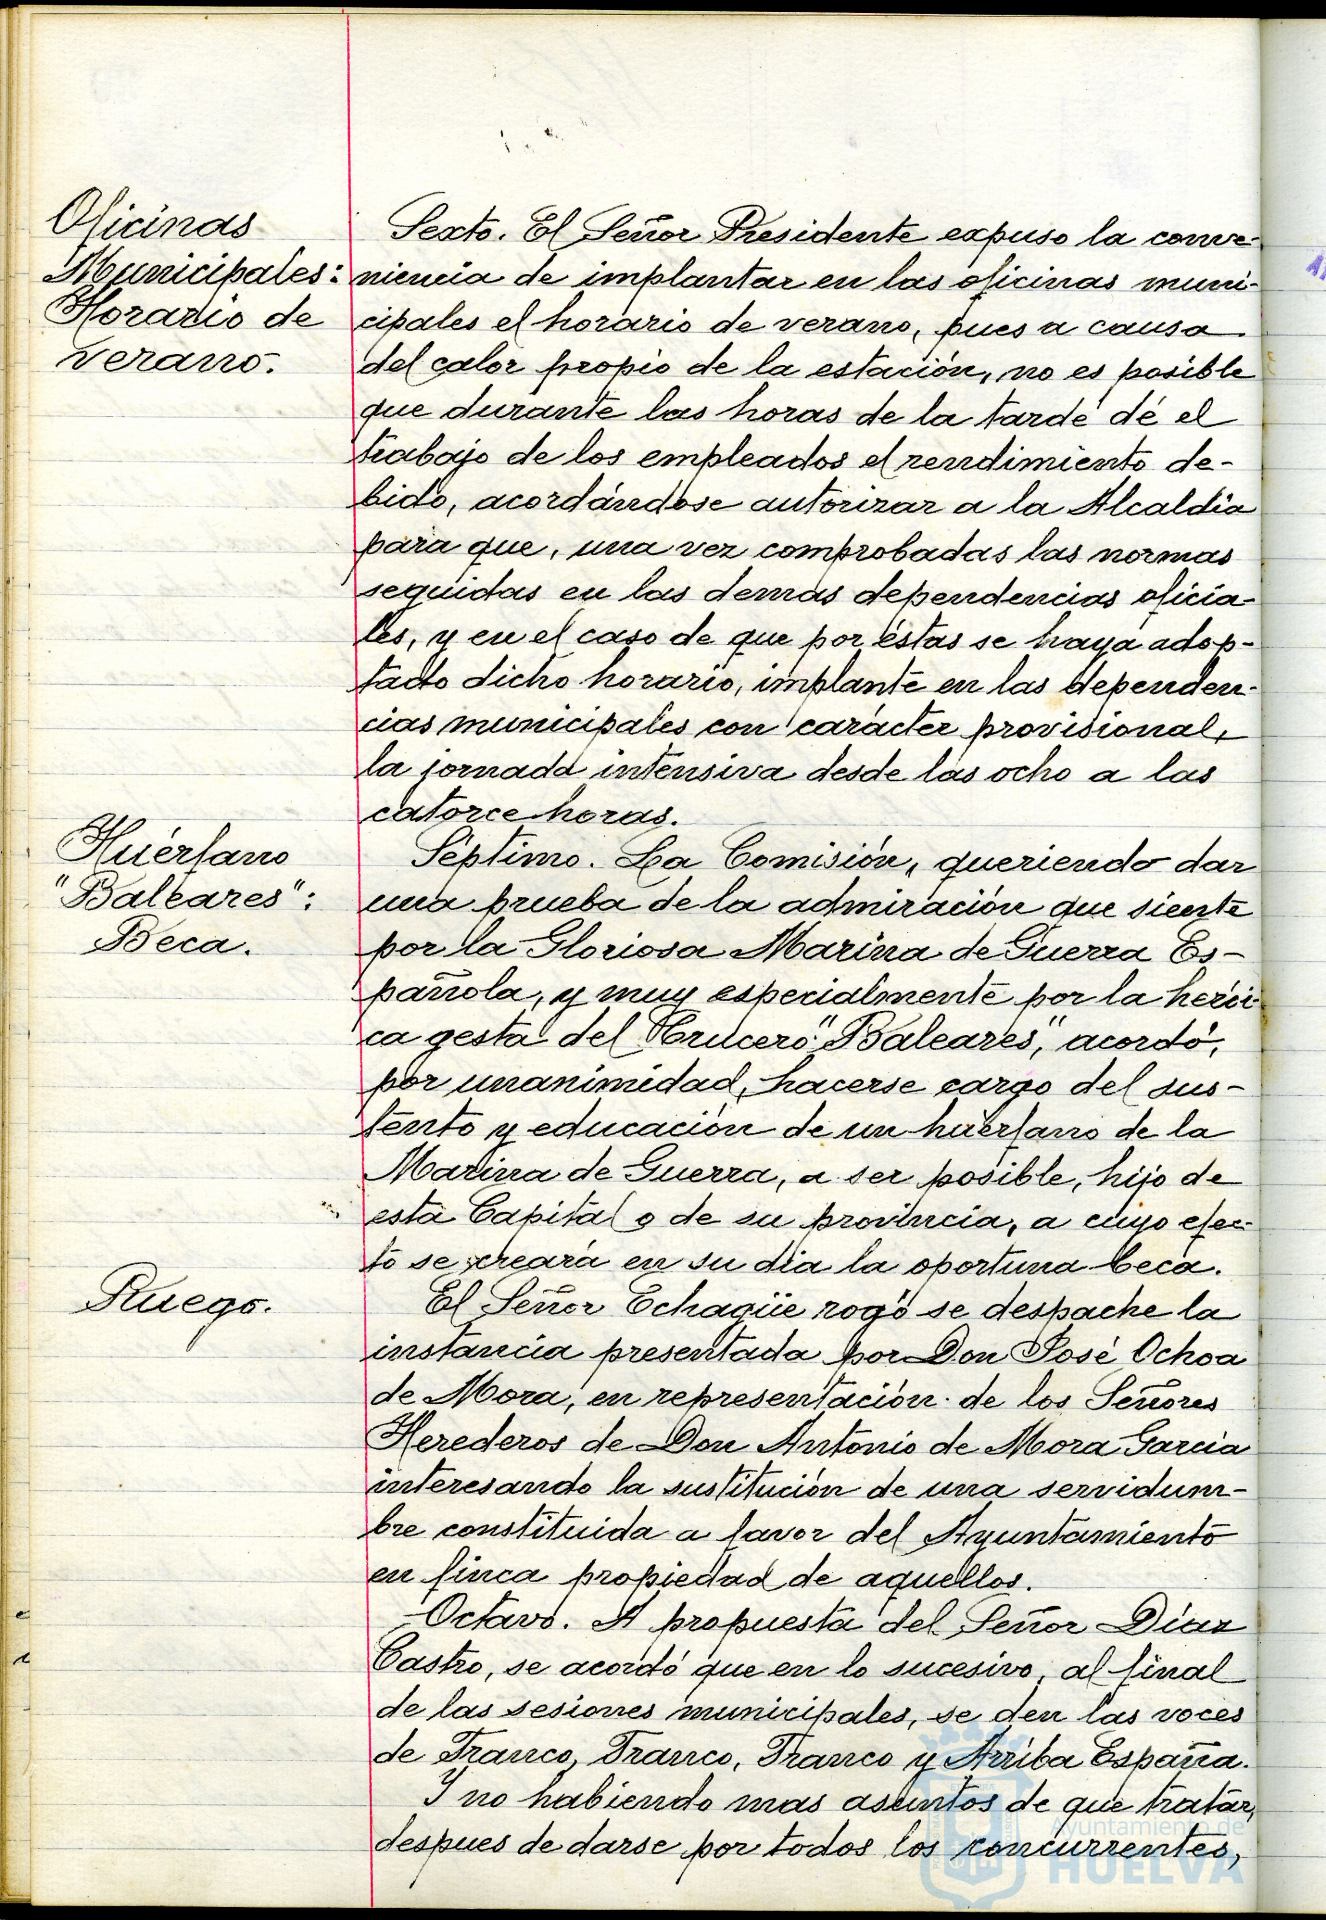 Oficinas
Municipales:
Horario de
verano.
Sexto. El Señor Presidente expuso la conve-
niencia de implantar en las oficinas muni-
cipales el horario de verano, pues a causa
del calor propio de la estación, no es posible
que durante las horas de la tarde dé el
trabajo de los empleados el rendimiento de-
bido, acordándose autorizar a la Alcaldía
para que, una vez comprobadas las normas
seguidas en las demás dependencias oficia-
les, y en el caso de que por éstas se haya adop-
tado dicho horario, implante en las dependen-
cias municipales con carácter provisional,
la jornada intensiva desde las ocho a las
catorce horas.
Huérfano
"Baleares":
Beca.
Séptimo. La Comisión, queriendo dar
una prueba de la admiración que siente
por la Gloriosa Marina de Guerra Es-
pañola, y muy especialmente por la herói-
ca gesta del Crucero "Baleares", acordó,
por unanimidad, hacerse cargo del sus-
tento y educación de un huérfano de la
Marina de Guerra, a ser posible, hijo de
esta Capital o de su provincia, a cuyo efec-
to se creará en su día la oportuna beca.
Ruego.
El Señor Echagüe rogó se despache la
instancia presentada por Don José Ochoa
de Mora, en representación de los Señores
Herederos de Don Antonio de Mora García
interesando la sustitución de una servidum-
bre constituida a favor del Ayuntamiento
en finca propiedad de aquellos.
Octavo. A propuesta del Señor Díaz
Castro, se acordó que en lo sucesivo, al final
de las sesiones municipales, se den las voces
de Franco, Franco, Franco y Arriba España.
Y no habiendo mas asuntos de que tratar,
despues de darse por todos los concurrentes,
Ayuntamiento de
HUELVA